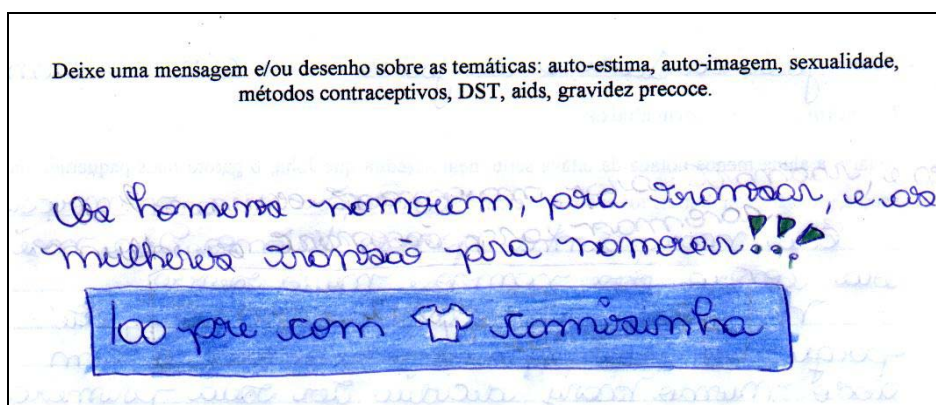 Deixe uma mensagem e/ou desenho sobre as temáticas: auto-estima, auto-imagem, sexualidade,
métodos contraceptivos, DST, aids, gravidez precoce.
Os homens namoram, para transar, e as
mulheres transão para namorar!!!
100 pre com camisinha